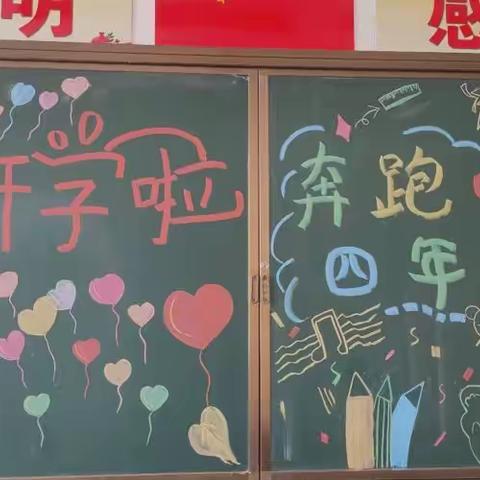 明
感
开学啦
奔跑
四年